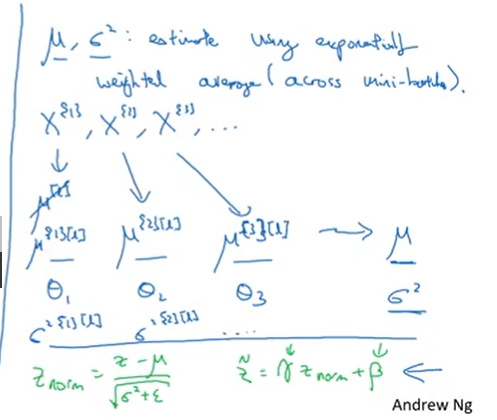 μ, σ²: estimate using exponentially
weighted average (across mini-batches).
X^{1}, X^{2}, X^{3}, ...
μ^{1}[l] μ^{2}[l] μ^{3}[l] → μ
θ₁ θ₂ θ₃ σ²
σ²^{1}[l] σ²^{2}[l] ....
z_norm = (z - μ) / √(σ² + ε) z̃ = γ z_norm + β
Andrew Ng